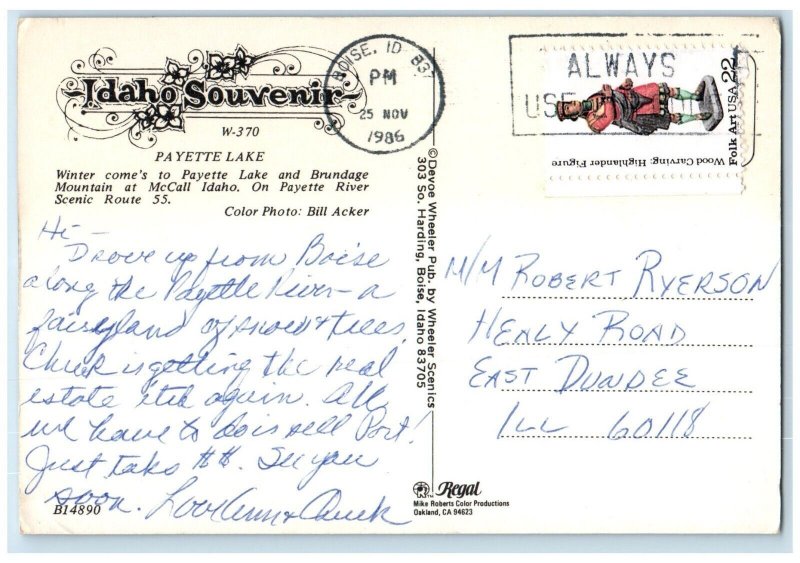 Idaho Souvenir
W-370
PAYETTE LAKE
Winter come's to Payette Lake and Brundage
Mountain at McCall Idaho. On Payette River
Scenic Route 55.
Color Photo: Bill Acker
Hi —
Drove up from Boise
along the Payette River – a
fairyland of snow & trees.
Chuck is getting the real
estate itch again. All
we have to do is sell Port!
Just takes $$. See you
soon. Love Ann & Chuck
B14890
BOISE, ID 837
PM
25 NOV
1986
ALWAYS
USE
Folk Art USA 22
Wood Carving: Highlander Figure
© Devoe Wheeler Pub. by Wheeler Scenics
303 So. Harding, Boise, Idaho 83705
M/M ROBERT RYERSON
HEALY ROAD
EAST DUNDEE
ILL 60118
Regal
Mike Roberts Color Productions
Oakland, CA 94623